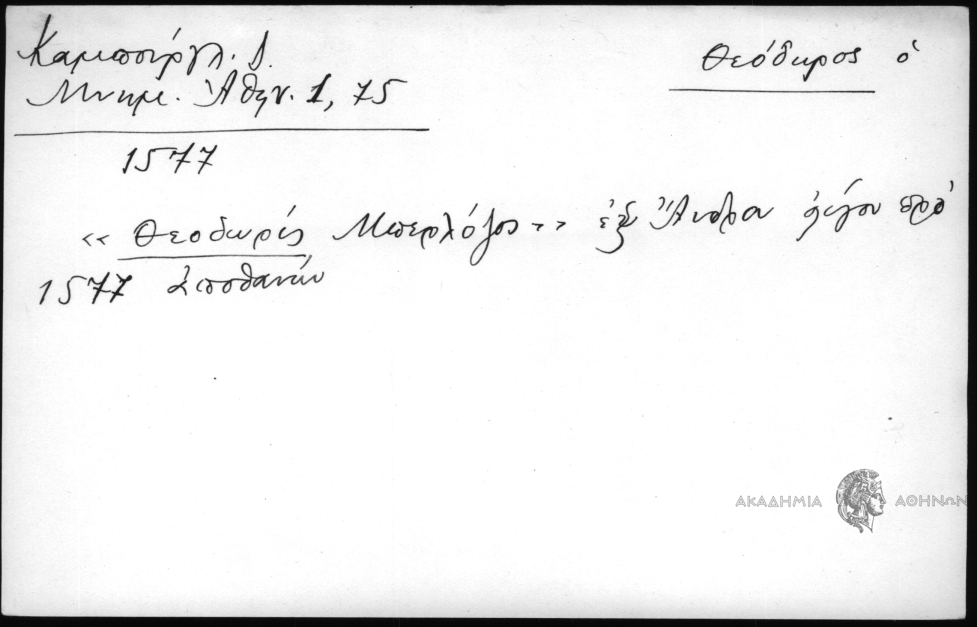 Καμπούργλ. Δ.
Μνημ. Ἀθην. 1, 75
Θεόδωρος ὁ
1577
« Θεοδωρής Μπερλόζος .» ἐξ Ἄνδρου ὀλίγον πρὸ
1577 ἀποθανών
ΑΚΑΔΗΜΙΑ ΑΘΗΝΩΝ